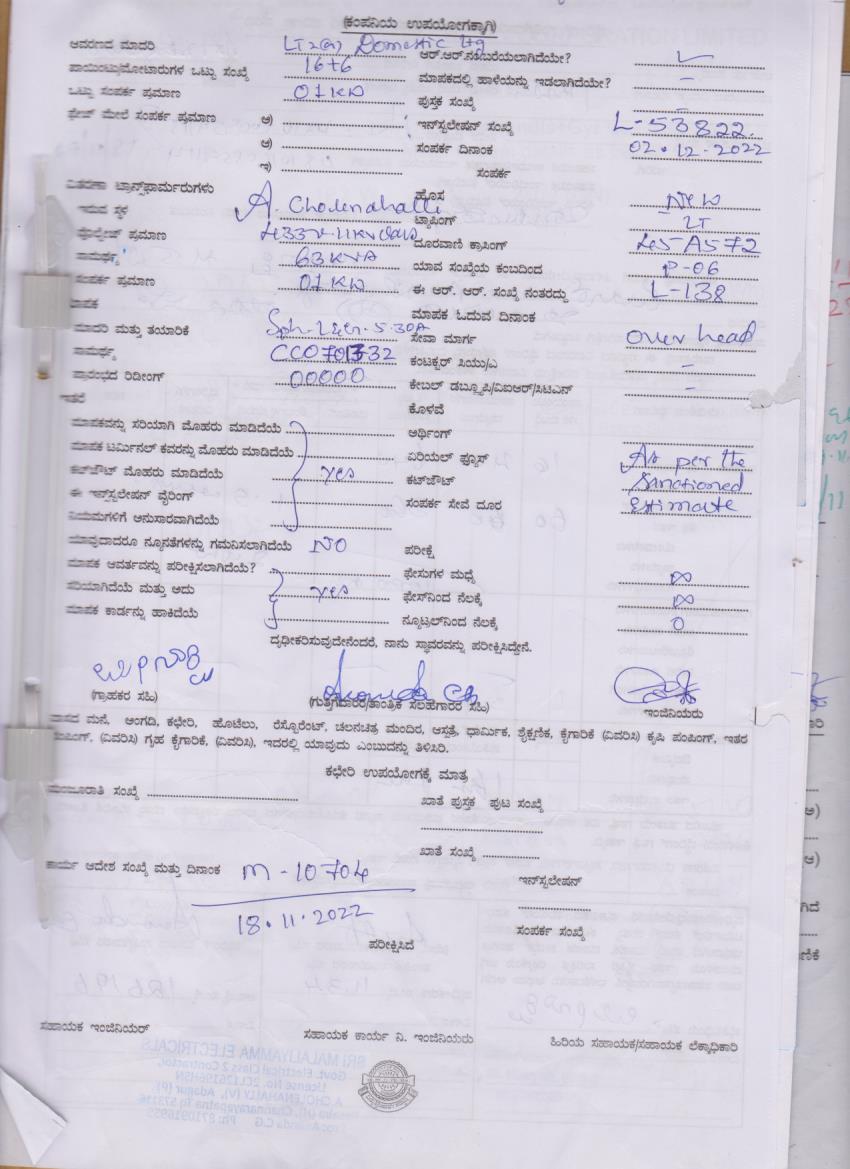 (ಕಂಪನಿಯ ಉಪಯೋಗಕ್ಕಾಗಿ)
ಆವರಣದ ಮಾದರಿ LT2(a) Domestic Ltg ಆರ್.ಆರ್.ನಂಬರೆಯಲಾಗಿದೆಯೇ?
ಪಾಯಿಂಟ್ಸ/ಮೋಟಾರುಗಳ ಒಟ್ಟು ಸಂಖ್ಯೆ 16+6 ಮಾಪಕದಲ್ಲಿ ಹಾಳೆಯನ್ನು ಇಡಲಾಗಿದೆಯೇ? –
ಒಟ್ಟು ಸಂಪರ್ಕ ಪ್ರಮಾಣ 01KW ಪುಸ್ತಕ ಸಂಖ್ಯೆ –
ಮೇಲೆ ಸಂಪರ್ಕ ಪ್ರಮಾಣ ಅ) ಇನ್‌ಸ್ಟಲೇಷನ್ ಸಂಖ್ಯೆ L-53822.
ಆ) ಸಂಪರ್ಕ ದಿನಾಂಕ 02.12.2022
ಇ) ಸಂಪರ್ಕ
ವಿತರಣಾ ಟ್ರಾನ್ಸ್‌ಫಾರ್ಮರುಗಳು ಹೊಸ New
ಇರುವ ಸ್ಥಳ A. Cholenahalli ಟ್ಯಾಪಿಂಗ್ LT
ವೋಲ್ಟೇಜ್ ಪ್ರಮಾಣ ದೂರವಾಣಿ ಕ್ರಾಸಿಂಗ್
ಸಾಮರ್ಥ್ಯ 63KVA ಯಾವ ಸಂಖ್ಯೆಯ ಕಂಬದಿಂದ P-06
ಸಂಪರ್ಕ ಪ್ರಮಾಣ 01KW ಈ ಆರ್. ಆರ್. ಸಂಖ್ಯೆ ನಂತರದ್ದು L-138
ಮಾಪಕ ಮಾಪಕ ಓದುವ ದಿನಾಂಕ
ಮಾದರಿ ಮತ್ತು ತಯಾರಿಕೆ ಸೇವಾ ಮಾರ್ಗ over head
ಸಾಮರ್ಥ್ಯ ಕಂಟಕ್ಟರ್ ಸಿಯು/ಎ –
ಪ್ರಾರಂಭದ ರಿಡೀಂಗ್ 00000 ಕೇಬಲ್ ಡಬ್ಲ್ಯೂಪಿ/ವಿಐಆರ್/ಸಿಟಿಎನ್ –
ಇತರೆ ಕೊಳವೆ
ಮಾಪಕವನ್ನು ಸರಿಯಾಗಿ ಮೊಹರು ಮಾಡಿದೆಯೆ ಅರ್ಥಿಂಗ್
ಮಾಪಕ ಟರ್ಮಿನಲ್ ಕವರನ್ನು ಮೊಹರು ಮಾಡಿದೆಯೆ ಏರಿಯಲ್ ಫ್ಯೂಸ್ As per the
ಕಟ್‌ಔಟ್ ಮೊಹರು ಮಾಡಿದೆಯೆ yes ಕಟ್‌ಔಟ್ Sanctioned
ಈ ಇನ್‌ಸ್ಟಲೇಷನ್ ವೈರಿಂಗ್ ಸಂಪರ್ಕ ಸೇವೆ ದೂರ Estimate
ನಿಯಮಗಳಿಗೆ ಅನುಸಾರವಾಗಿದೆಯೆ
ಯಾವುದಾದರೂ ನ್ಯೂನತೆಗಳನ್ನು ಗಮನಿಸಲಾಗಿದೆಯೆ NO ಪರೀಕ್ಷೆ
ಮಾಪಕ ಆವರ್ತವನ್ನು ಪರೀಕ್ಷಿಸಲಾಗಿದೆಯೆ? ಫೇಸುಗಳ ಮಧ್ಯೆ ∞
ಸರಿಯಾಗಿದೆಯೆ ಮತ್ತು ಅದು yes ಫೇಸ್‌ನಿಂದ ನೆಲಕ್ಕೆ ∞
ಮಾಪಕ ಕಾರ್ಡನ್ನು ಹಾಕಿದೆಯೆ ನ್ಯೂಟ್ರಲ್‌ನಿಂದ ನೆಲಕ್ಕೆ 0
ದೃಢೀಕರಿಸುವುದೇನೆಂದರೆ, ನಾನು ಸ್ಥಾವರವನ್ನು ಪರೀಕ್ಷಿಸಿದ್ದೇನೆ.
(ಗ್ರಾಹಕರ ಸಹಿ) (ಗುತ್ತಿಗೆದಾರರ/ತಾಂತ್ರಿಕ ಸಲಹೆಗಾರರ ಸಹಿ) ಇಂಜಿನಿಯರು
ವಾಸದ ಮನೆ, ಅಂಗಡಿ, ಕಛೇರಿ, ಹೊಟೆಲು, ರೆಸ್ಟೊರೆಂಟ್, ಚಲನಚಿತ್ರ ಮಂದಿರ, ಆಸ್ಪತ್ರೆ, ಧಾರ್ಮಿಕ, ಶೈಕ್ಷಣಿಕ, ಕೈಗಾರಿಕೆ (ವಿವರಿಸಿ) ಕೃಷಿ ಪಂಪಿಂಗ್, ಇತರ
ಪಂಪಿಂಗ್, (ವಿವರಿಸಿ) ಗೃಹ ಕೈಗಾರಿಕೆ, (ವಿವರಿಸಿ), ಇದರಲ್ಲಿ ಯಾವುದು ಎಂಬುದನ್ನು ತಿಳಿಸಿರಿ.
ಕಛೇರಿ ಉಪಯೋಗಕ್ಕೆ ಮಾತ್ರ
ಮಂಜೂರಾತಿ ಸಂಖ್ಯೆ ಖಾತೆ ಪುಸ್ತಕ ಪುಟ ಸಂಖ್ಯೆ
ಖಾತೆ ಸಂಖ್ಯೆ
ಕಾರ್ಯ ಆದೇಶ ಸಂಖ್ಯೆ ಮತ್ತು ದಿನಾಂಕ M-10704 ಇನ್‌ಸ್ಟಲೇಷನ್
18.11.2022
ಸಂಪರ್ಕ ಸಂಖ್ಯೆ
ಪರೀಕ್ಷಿಸಿದೆ
ಸಹಾಯಕ ಇಂಜಿನಿಯರ್ ಸಹಾಯಕ ಕಾರ್ಯ ನಿ. ಇಂಜಿನಿಯರು ಹಿರಿಯ ಸಹಾಯಕ/ಸಹಾಯಕ ಲೆಕ್ಕಾಧಿಕಾರಿ